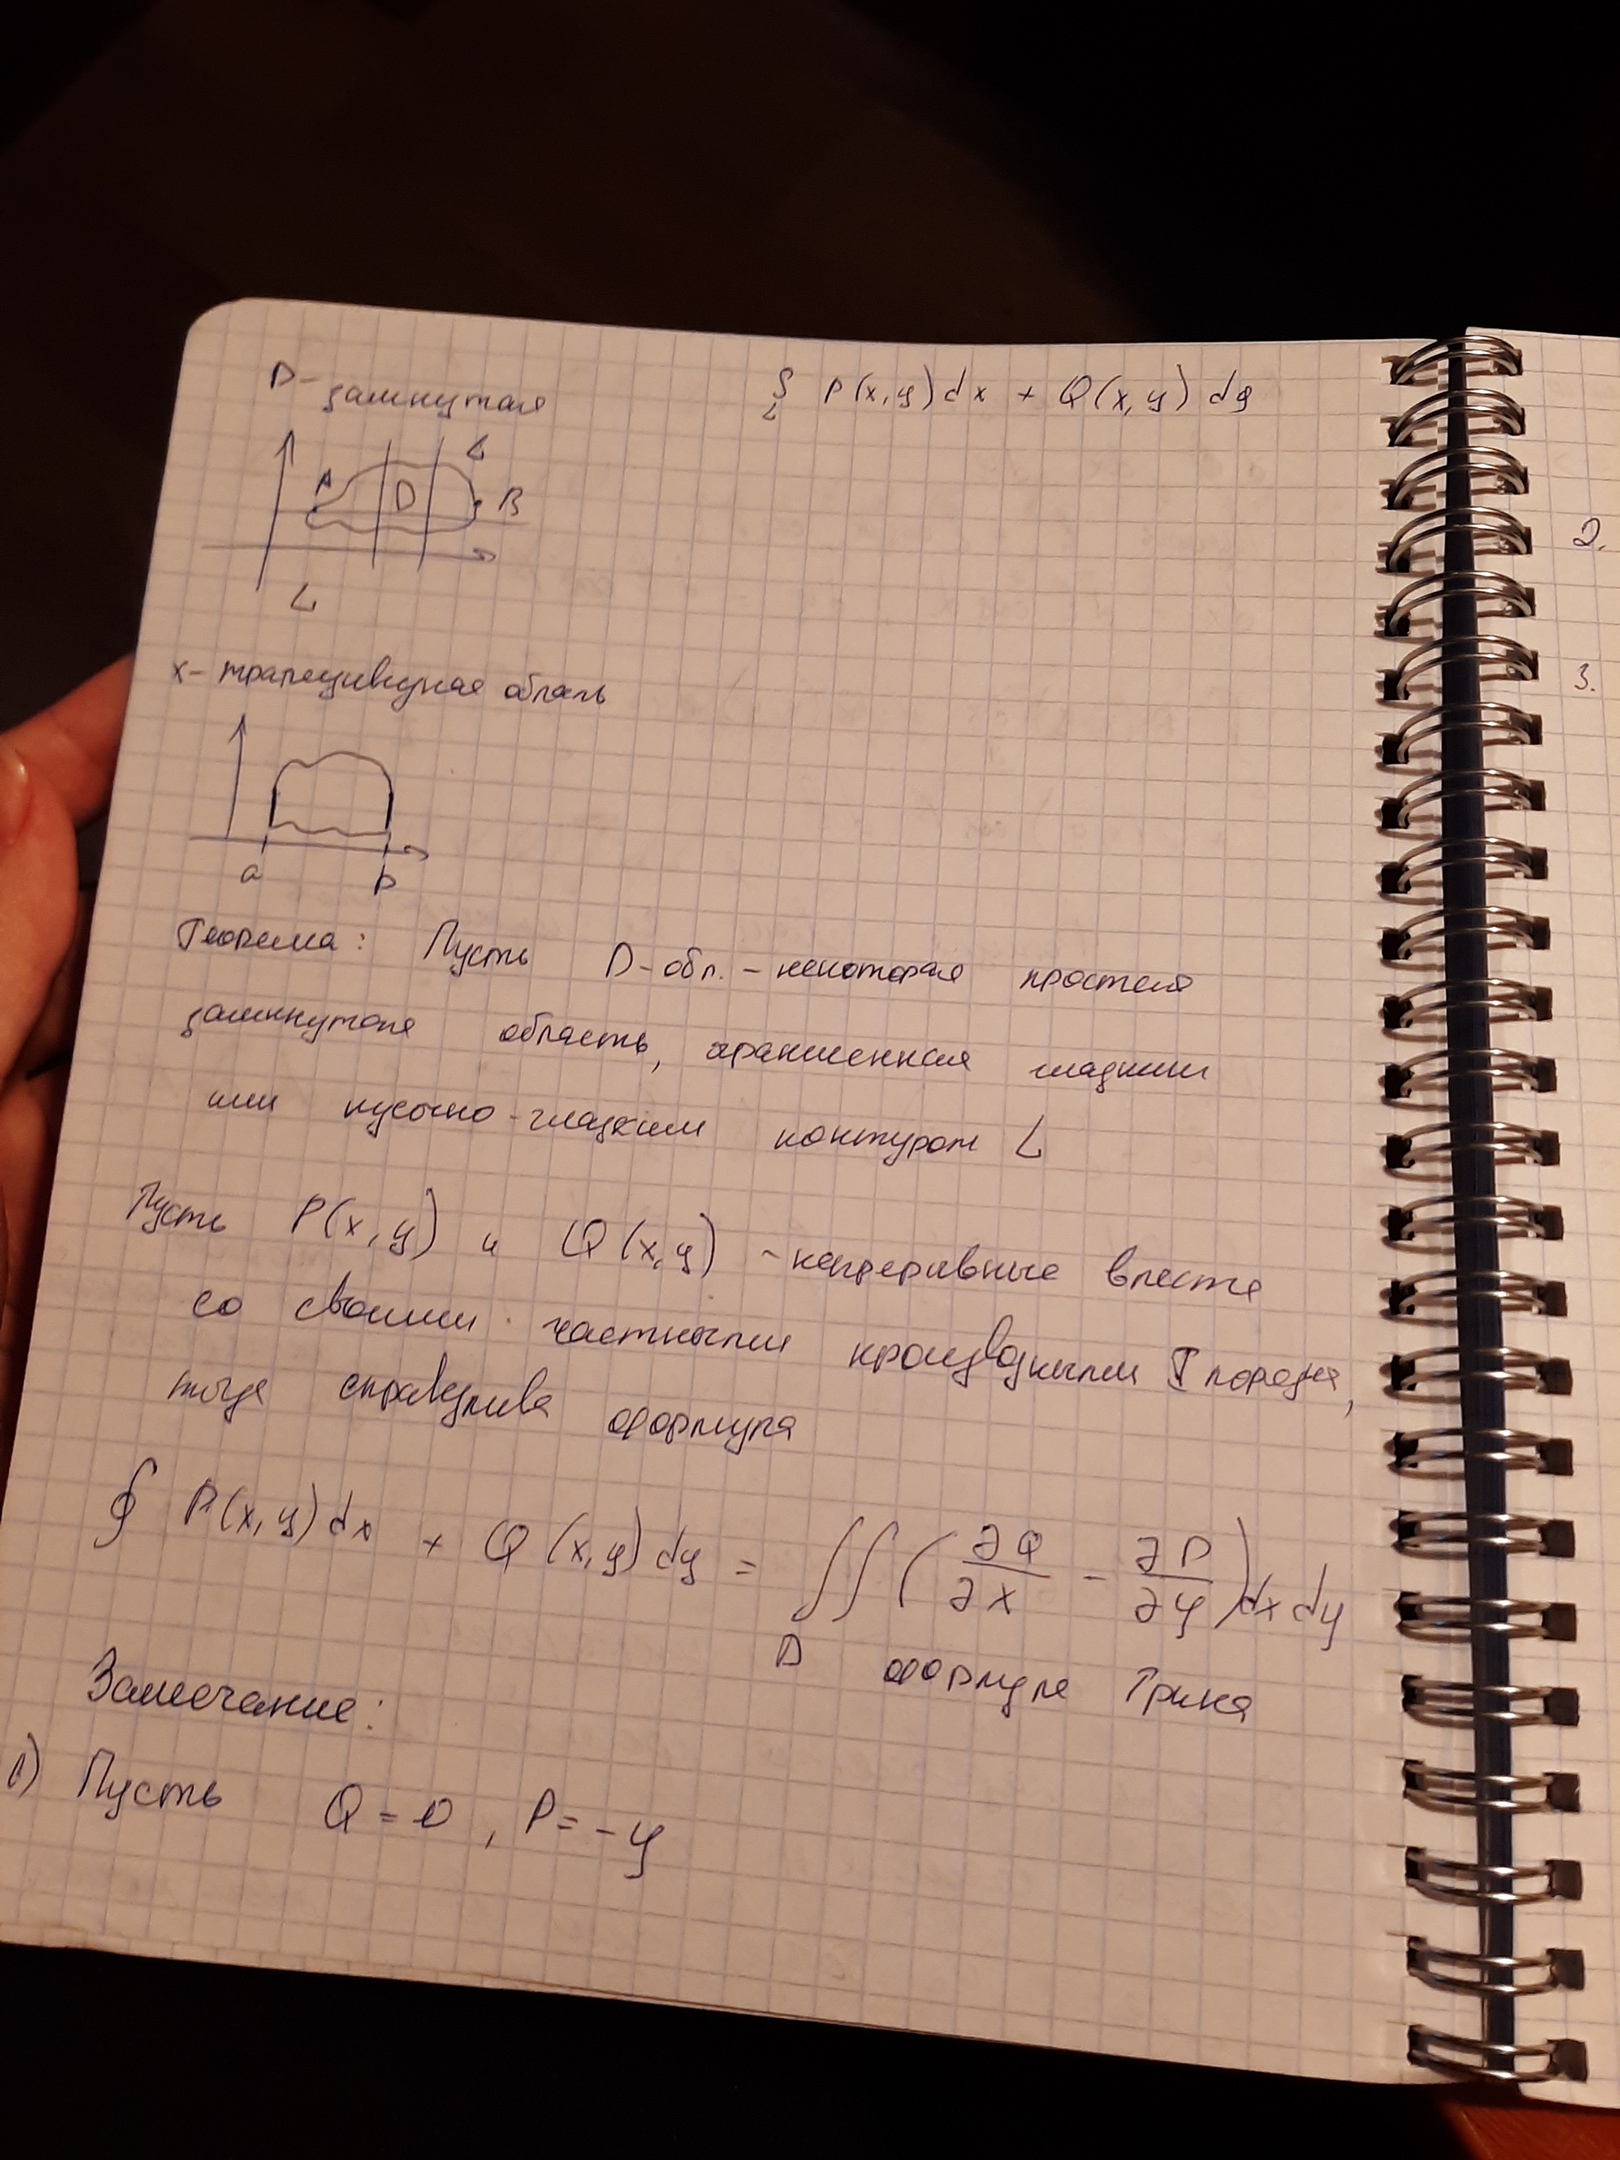 D - замкнутая
∫ P(x,y)dx + Q(x,y)dy
L
L
A D B
L
x - трапецивидная область
a b
Теорема: Пусть D - обл. - некоторая простая
замкнутая область, ограниченная гладким
или кусочно-гладким контуром L
Пусть P(x,y) и Q(x,y) - непрерывные вместе
со своими частными производными I порядка,
тогда справедлива формула
∮ P(x,y)dx + Q(x,y)dy = ∬ (∂Q/∂x - ∂P/∂y)dxdy
D формула Грина
Замечание:
1) Пусть Q = 0, P = -y
2.
3.